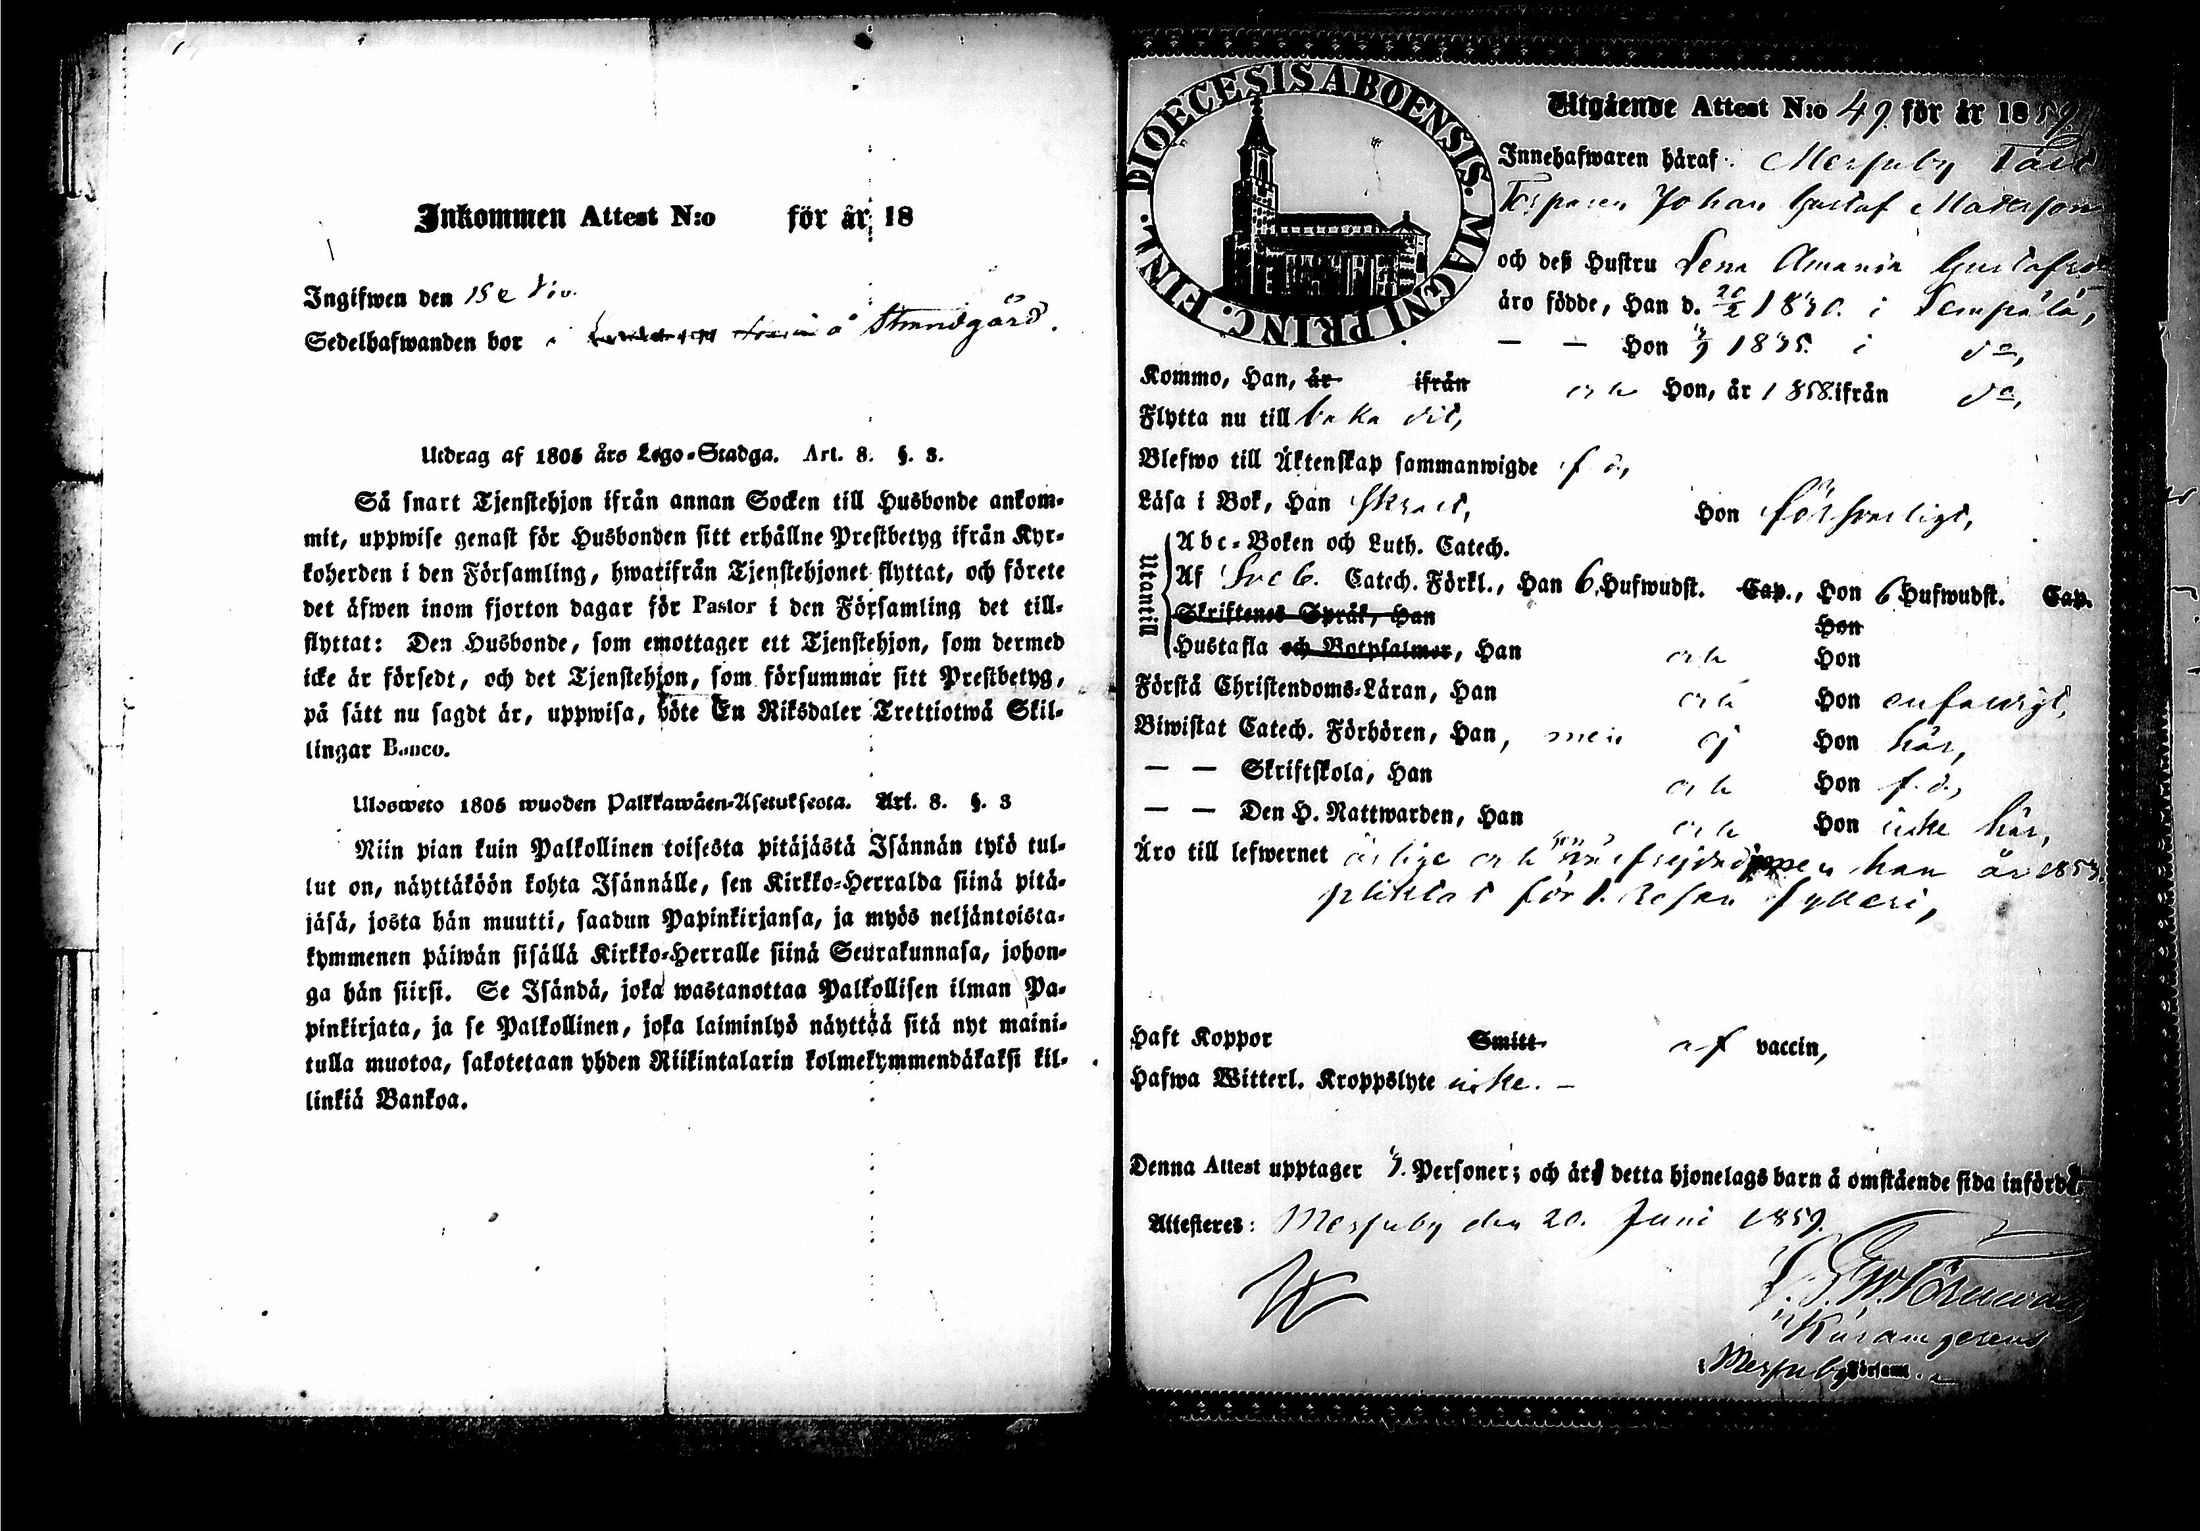 Inkommen Attest N:o för år 18
Ingifwen den
Sedelhafwanden bor å Strandgård.
Utdrag af 1805 års Lego-Stadga. Art. 8. §. 3.
Så snart Tjenstehjon ifrån annan Socken till Husbonde ankom-
mit, uppwise genast för Husbonden sitt erhållne Prestbetyg ifrån Kyr-
koherden i den Församling, hwarifrån Tjenstehjonet flyttat, och förete
det äfwen inom fjorton dagar för Pastor i den Församling det till-
flyttat: Den Husbonde, som emottager ett Tjenstehjon, som dermed
icke är försedt, och det Tjenstehjon, som försummar sitt Prestbetyg,
på sätt nu sagdt är, uppwisa, böte En Riksdaler Trettiotwå Skil-
lingar Banco.
Ulosweto 1805 wuoden Palkkawäen-Asetuksesta. Art. 8. §. 3
Niin pian kuin Palkollinen toisesta pitäjästä Isännän tykö tul-
lut on, näyttäköön kohta Isännälle, sen Kirkko-Herralda siinä pitä-
jäsä, josta hän muutti, saadun Papinkirjansa, ja myös neljäntoista-
kymmenen päiwän sisällä Kirkko-Herralle siinä Seurakunnasa, johon-
ga hän siirsi. Se Isändä, joka wastanottaa Palkollisen ilman Pa-
pinkirjata, ja se Palkollinen, joka laiminlyö näyttää sitä nyt maini-
tulla muotoa, sakotetaan yhden Riikintalarin kolmekymmendäkaksi kil-
linkiä Bankoa.
DIOECESIS ABOENSIS. MAGNI PRINC. FINL.
Utgående Attest N:o 49. för år 1859
Innehafwaren häraf: Messuby
Torparen Johan Gustaf Matsson
och deß Hustru Lena Amanda Gustafsd
äro födde, Han d. 20/2 1830. i Lempälä,
— — Hon 1835. i do,
Kommo, Han, år ifrån och Hon, år 1858. ifrån do,
Flytta nu till baka dit,
Blefwo till Äktenskap sammanwigde f. å,
Läsa i Bok, Han Hon försvarligt,
Utantill
Abc-Boken och Luth. Catech.
Af Sveb. Catech. Förkl., Han 6. Hufwudst. Cap., Hon 6 Hufwudst. Cap.
Skriftenes Språk, Han Hon
Hustafla och Botpsalmer, Han och Hon
Förstå Christendoms-Läran, Han och Hon enfaldigt,
Biwistat Catech. Förhören, Han, men ej Hon här,
— — Skriftskola, Han och Hon f. d,
— — Den H. Nattwarden, Han och Hon icke här,
Äro till lefwernet ärlige och han år 1853.
pliktat för 1. resan fylleri,
Haft Koppor Smitt af vaccin,
Hafwa Witterl. Kroppslyte icke. —
Denna Attest upptager Personer; och äro detta hjonelags barn å omstående sida införde.
Attesteras: Messuby den 20. Juni 1859.
i Messuby Församl.